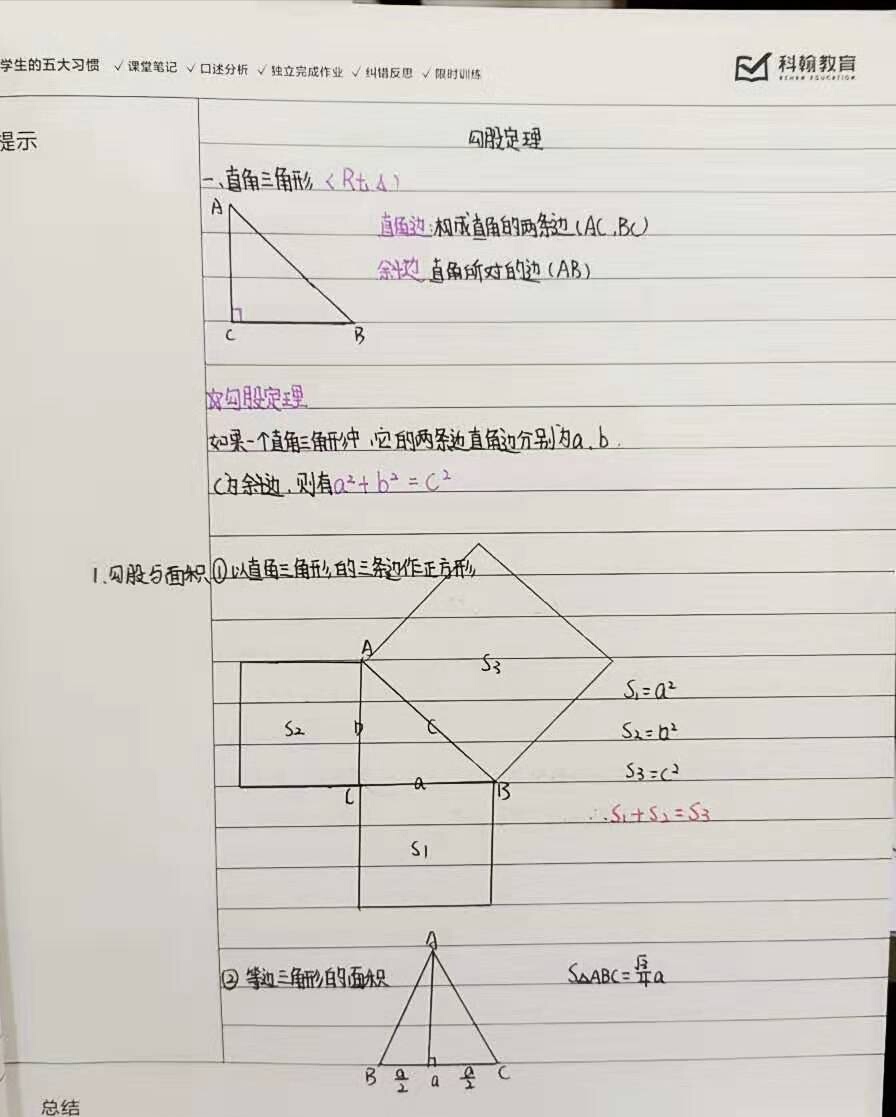 学生的五大习惯 ✓课堂笔记 ✓口述分析 ✓独立完成作业 ✓纠错反思 ✓限时训练
科翰教育
KEHAN EDUCATION
提示
勾股定理
一、直角三角形〈Rt△〉
A
直角边:构成直角的两条边(AC,BC)
斜边 直角所对的边(AB)
C
B
☆勾股定理
如果一个直角三角形中,它的两条边直角边分别为a、b.
C为斜边,则有a²+b²=c²
1.勾股与面积①以直角三角形的三条边作正方形
A
S3
S₁=a²
S2
b
c
S₂=b²
S3=c²
C
a
B
∴S₁+S₂=S3
S1
A
②等边三角形的面积
S△ABC=√3/4a
B
a/2
a
a/2
C
总结